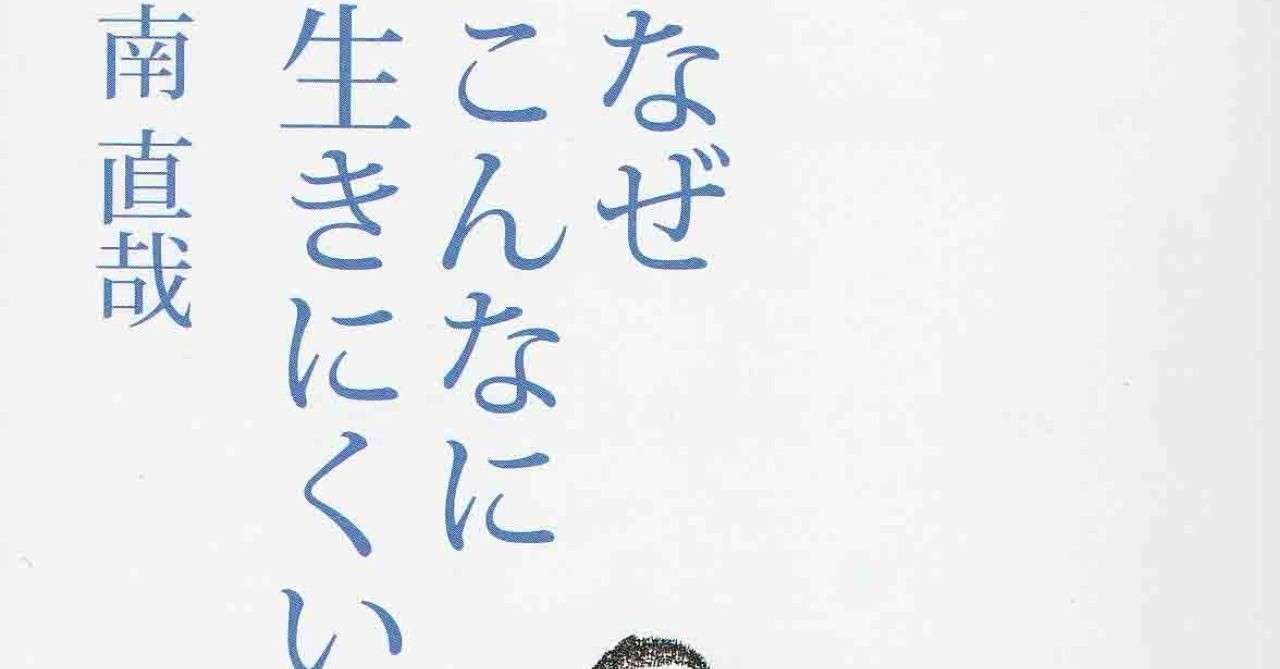 なぜ
こんなに
生きにくい
南 直哉